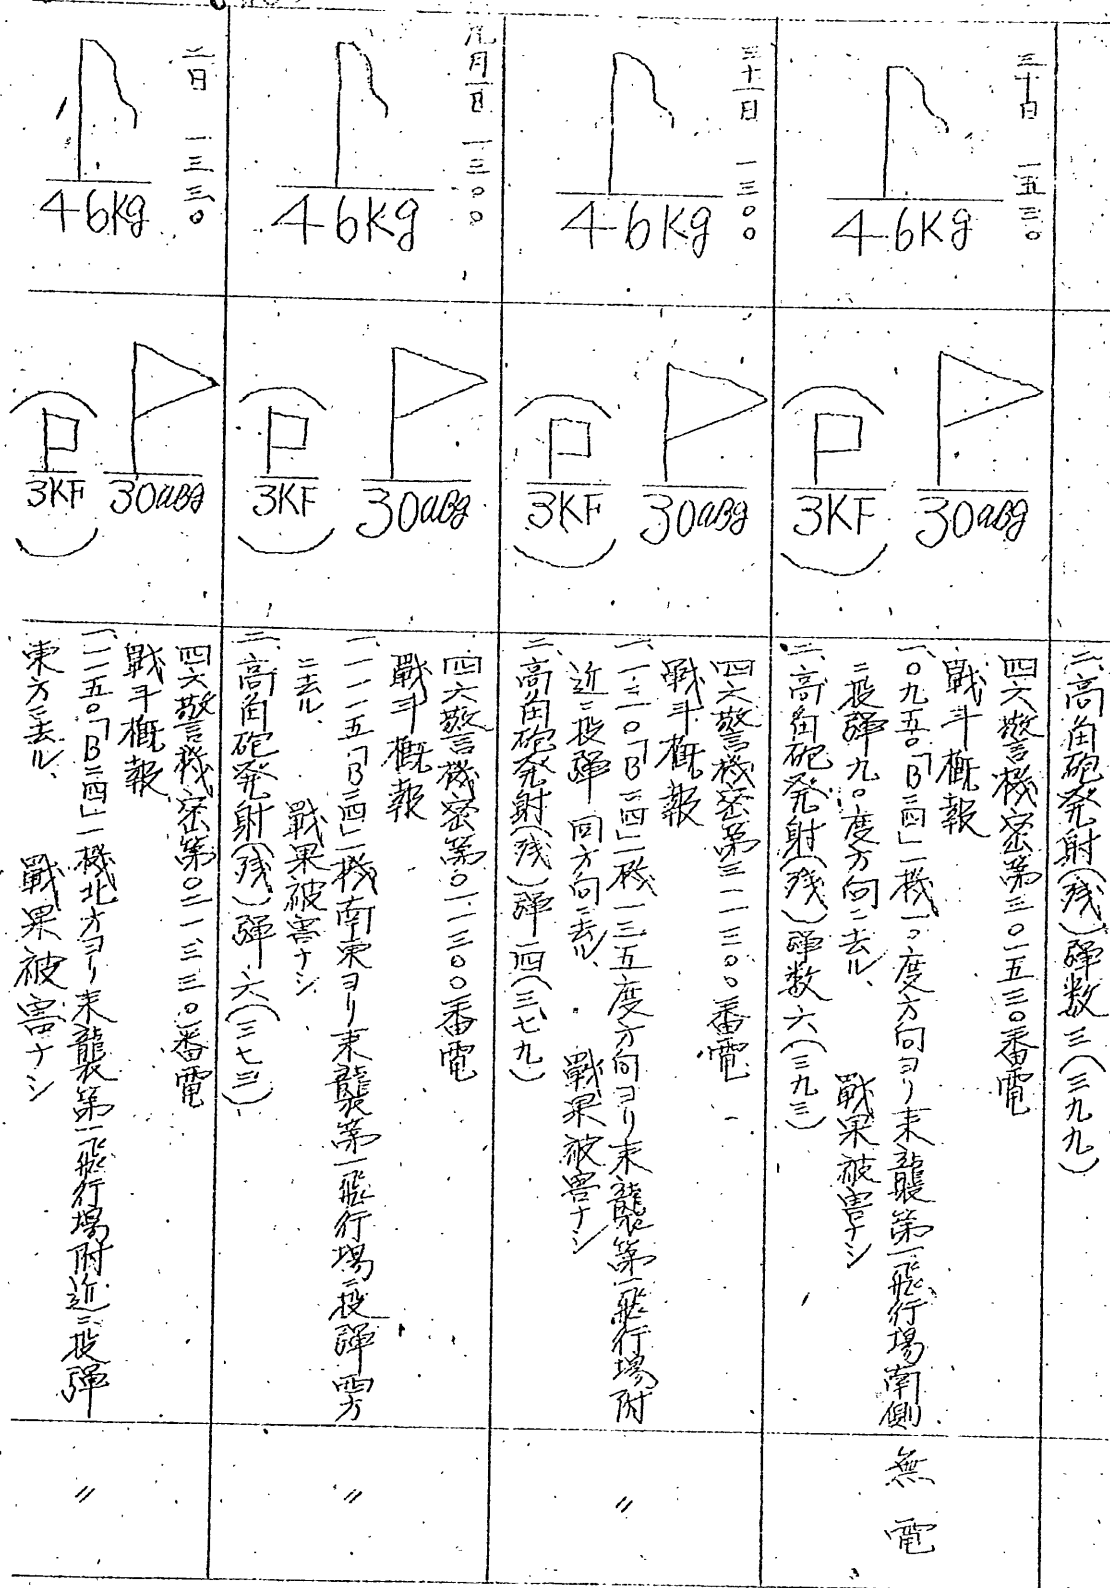 二、高角砲発射(残)弾数三(三九九)
三十日 一五三〇
46Kg
30aBg
(3KF)
四六警機密第三〇一五三〇番電
戦斗概報
一、〇九五〇「B二四」一機一〇度方向ヨリ来襲第一飛行場南側
ニ投弾九〇度方向ニ去ル、 戦果被害ナシ
二、高角砲発射(残)弾数六(三九三)
無電
三十一日 一三〇〇
46Kg
30aBg
(3KF)
四六警機密第三一一三〇〇番電
戦斗概報
一、一二〇「B二四」一機一三五度方向ヨリ来襲第一飛行場附
近ニ投弾同方向ニ去ル、 戦果被害ナシ
二、高角砲発射(残)弾一四(三七九)
〃
月一日 一三〇〇
46Kg
30aBg
(3KF)
四六警機密第〇一一三〇〇番電
戦斗概報
一、一一一五「B二四」一機南東ヨリ来襲第一飛行場ニ投弾西方
ニ去ル、 戦果被害ナシ
二、高角砲発射(残)弾六(三七三)
〃
二日 一三三〇
46Kg
30aBg
(3KF)
四六警機密第〇二一三三〇番電
戦斗概報
一、一一五〇「B二四」一機北方ヨリ来襲第一飛行場附近ニ投弾
東方ニ去ル、 戦果被害ナシ
〃